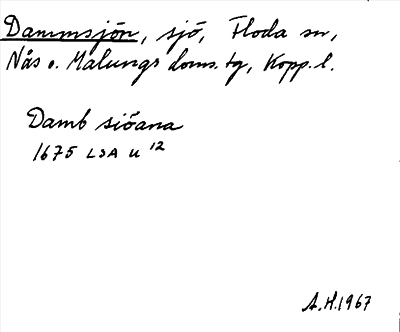 Dammsjön, sjö, Floda sn,
Nås o. Malungs doms. tg, Kopp. l.
Damb siöana
1675 LSA U 12
A.H. 1967